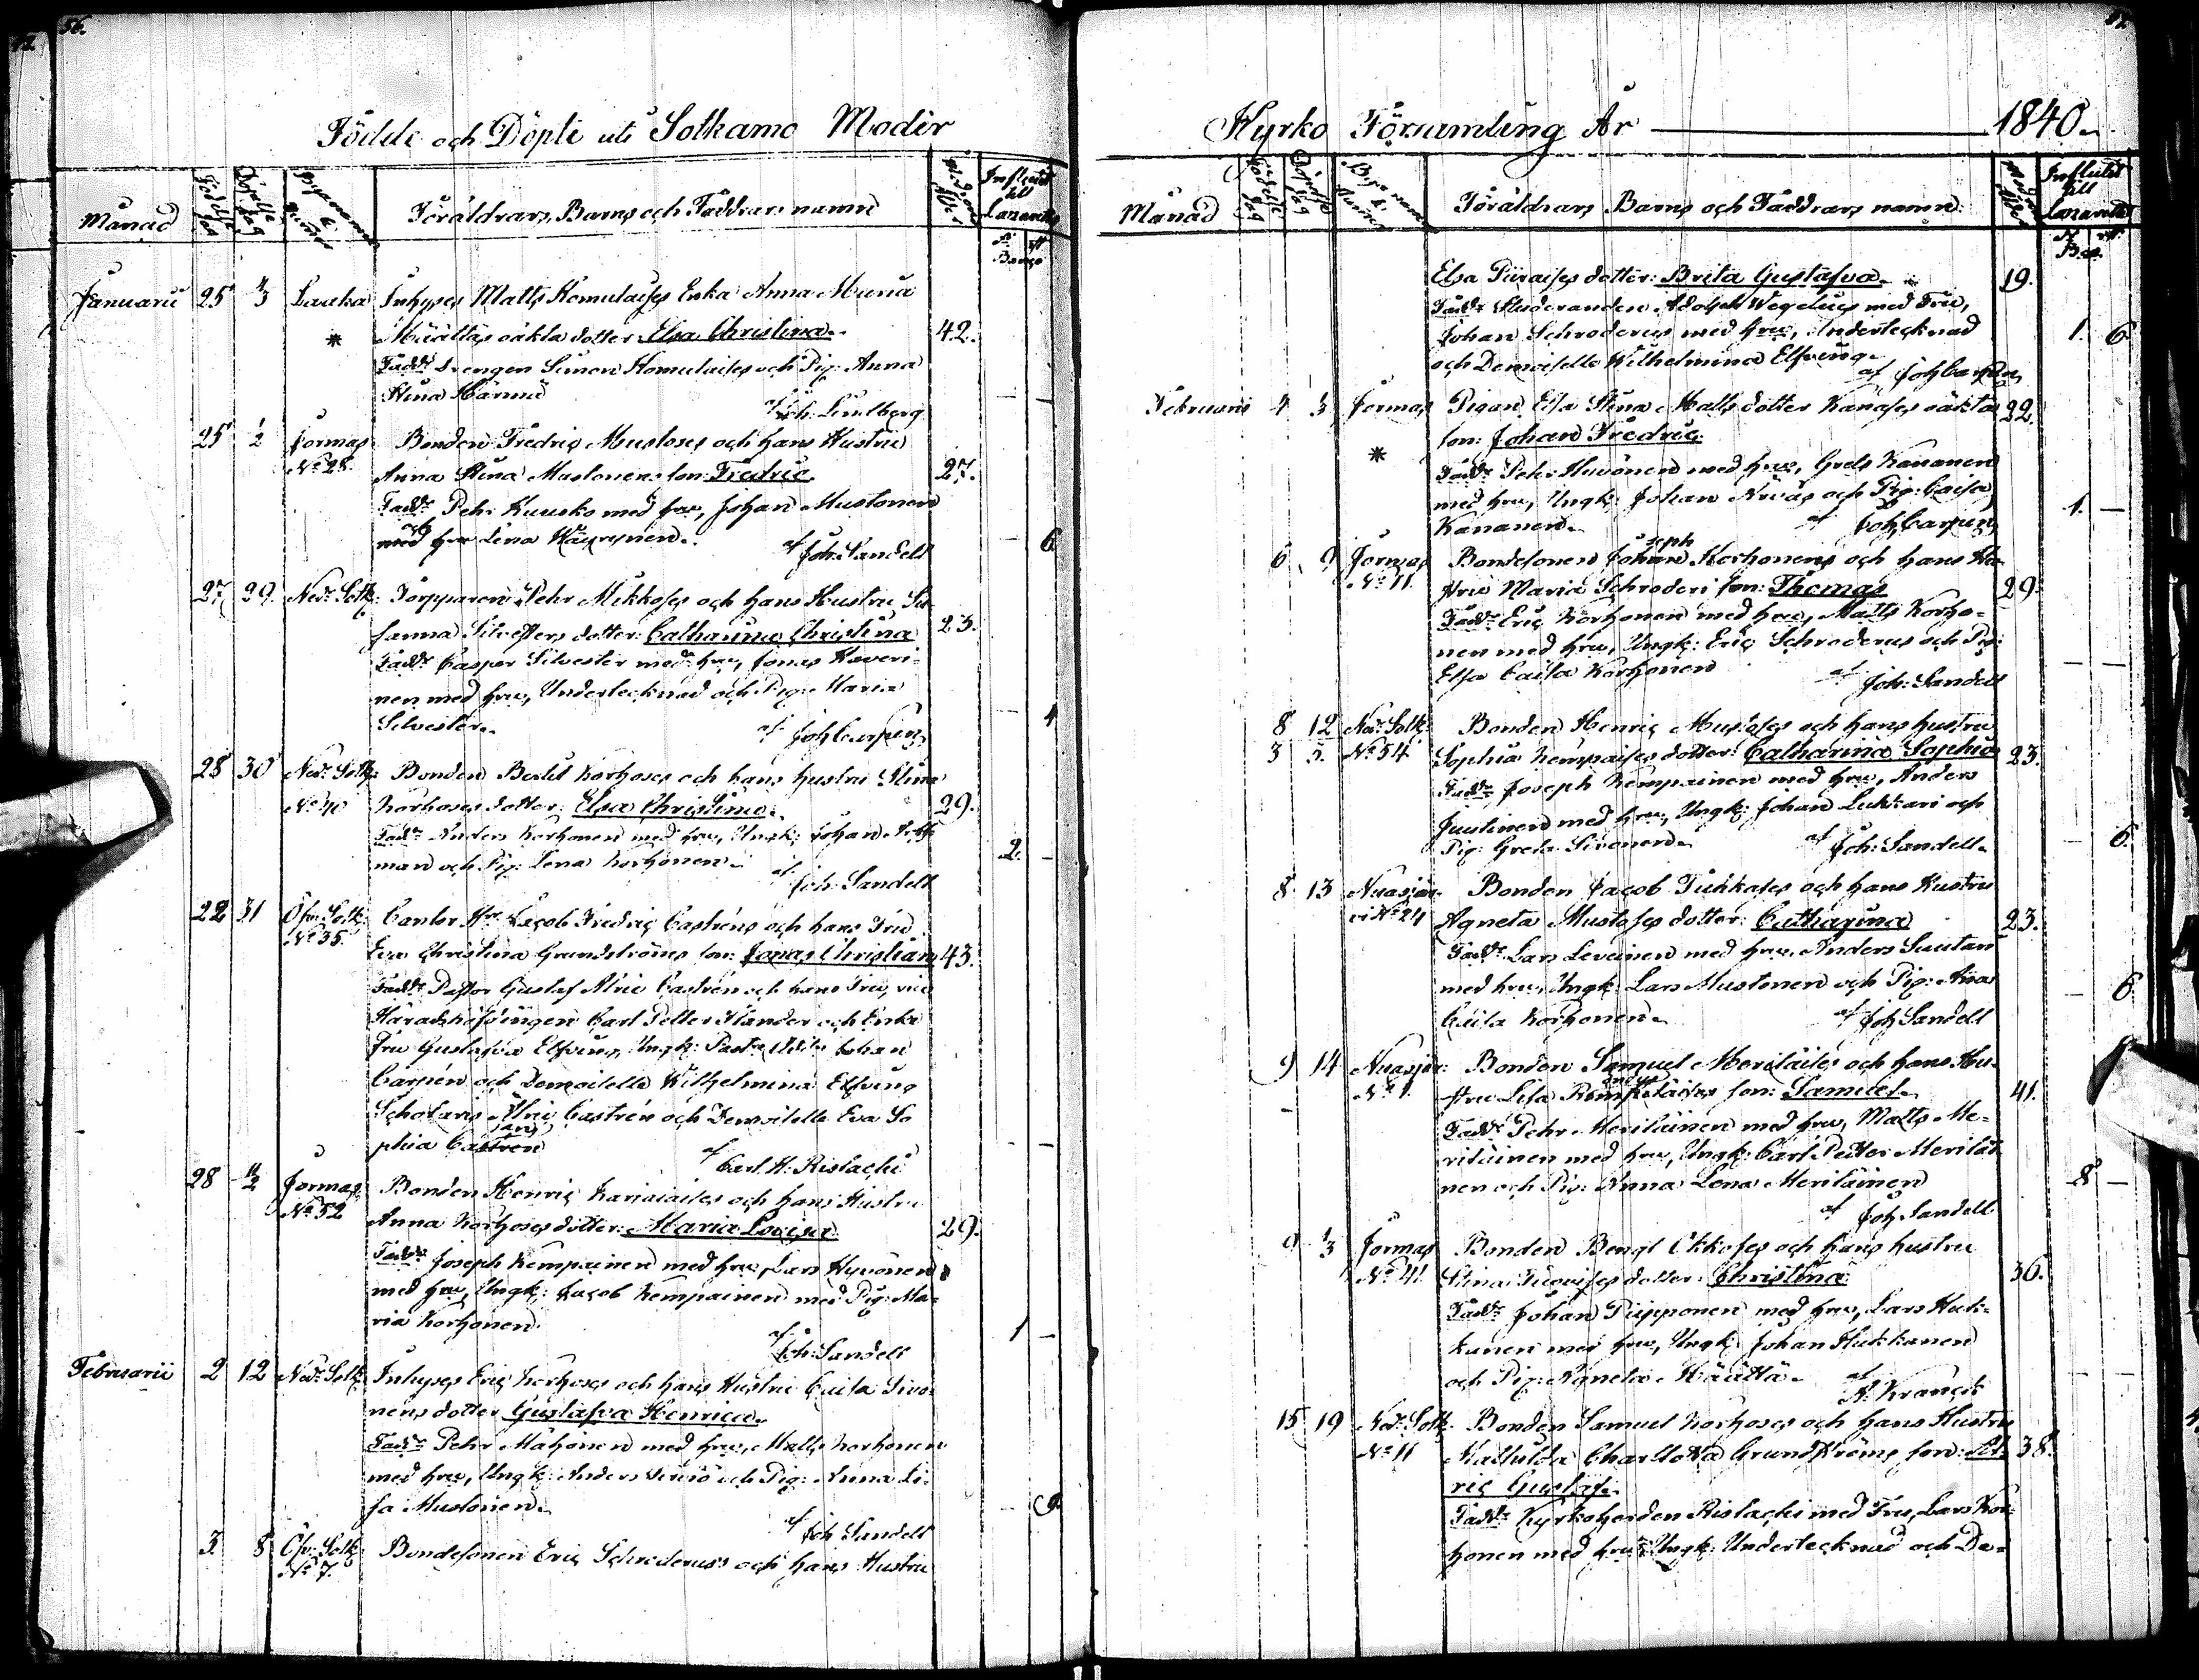 56.
Födde och Döpte uti Sotkamo Moder
Månad
Födelse dag
Döpelse dag
Byanamn & Numer
Föräldrars, Barns och Faddrars namn
Modrens ålder
Influtit till Lazarettet
Januarii 25 1/3 Laaka Inhyses Matts Komulaises Enka Anna Maria
Määttäs oäkta dotter Elsa Christina. 42.
Fadd: Drengen Simon Komulaises och Pig: Anna
Stina Härmä
af Joh. Lindberg
25 1/2 Jormas Bonden Fredric Mustoses och hans Hustru
No 28. Anna Stina Mustonens son: Fredric. 27.
Fadd: Pehr Kuusko med hru, Johan Mustonen
med hru Lena Käyrynen. 6.
af Joh: Sandell
27 29. Ned: Sotk: Torpparen Pehr Mikkoses och hans Hustru Su-
sanna Silvesters dotter: Catharina Christina 23.
Fadd: Casper Silvester med hru, Jonas Kaveri-
nen med hru, Undertecknad och Pig: Maria
Silvester. 4
af Joh Carpén
28 30 Ned: Sotk: Bonden Bertil Korhoses och hans hustru Stina
No 40 Korhoses dotter: Elsa Christina. 29.
Fadd: Anders Korhonen med hru, Ungk: Johan
man och Pig: Lena Korhonen. 2. -
af Joh: Sandell
22 31 Öfv: Sotk: Cantor Hr Jacob Fredric Castréns och hans Fru
No 35. Eva Christina Grundströms son: Jonas Christian 43.
Fadd: Pastor Gustaf Alric Castrén och hans Fru, vice
Häradshöfdingen Carl Petter Ståhlander och Enke
Fru Gustafva Elfving, Ungk: Johan
Carpén och Demoiselle Wilhelmina Elfving
Scholaris Alric Castrén och Demoiselle Eva So
phia Castrén
af Carl H: Rislachi
28 11/2 Jormas Bonden Henric Karjalaises och hans Hustru
No 52 Anna Korhoses dotter: Maria Lovisa 29.
Fadd: Joseph Kempainen med hru, Lars Hyvönen
med hru, Ungk: Jacob Kempainen med Pig: Ma-
ria Korhonen. 1 -
af Joh: Sandell
Februarii 2 12 Ned: Sotk: Inhyses Eric Korhoses och hans Hustru Caisa Sivo-
nens dotter Gustafva Henrica.
Fadd: Pehr Mähönen med hru, Matts Korhonen
med hru, Ungk: Anders och Pig: Anna Li-
sa Mustonen. 9.
af Joh Sandell
3. 8 Öfv: Sotk: Bondesonen Eric Schroderuses och hans Hustru
No 7.
Kyrko Församling År 1840.
Månad
Födelse dag
Döpelse dag
Byanamn & Numer
Föräldrars Barns och Faddrars namn:
Modrens ålder
Influtit till Lazarettet
Elsa Piiraises dotter: Brita Gustafva. 19.
Fadd: Studeranden Adolph Wegelius med Fru,
Johan Schroderus med hru, Undertecknad 1. 6.
och Demoiselle Wilhelmina Elfving.
af Joh Carpén
Februarii 4 1/3 Jormas Pigan Elsa Stina Matts dotter Kanases oäkta 22.
son: Johan Fredric.
Fadd: Pehr Huvönen med hru, Grels Kananen
med hru, Ungk: Johan Nivas och Pig: Caisa 1. -
Kananen. af Joh Carpén
6. 9 Jormas Bondesonen Joseph Korhonens och hans Hu-
No 11. stru Maria Schroderi son: Thomas 29.
Fadd: Eric Korhonen med hru, Matts Korho-
nen med hru, Ungk: Eric Schroderus och Pig:
Elsa Caisa Korhonen
af Joh: Sandell
8 12 Ned: Sotk: Bonden Henric Mustoses och hans hustru
3 5. No 54 Sophia Kempaises dotter: Catharina Sophia 23.
Fadd: Joseph Kempainen med hru, Anders
Juutinen med hru, Ungk: Johan Lukkari och
Pig: Greta Sivonen. af Joh: Sandell. 6.
8 13 Nuasjär- Bonden Jacob Tuhkases och hans Hustru
vi No 24 Agneta Mustoses dotter: Catharina 23.
Fadd: Lars Leveinen med hru, Anders Suutari
med hru, Ungk: Lars Mustonen och Pig: Anna
Caisa Korhonen. af Joh Sandell 6.
9 14 Nuasjär: Bonden Samuel Meriläises och hans Hu-
No 1. stru Lisa son: Samuel. 41.
Fadd: Pehr Meriläinen med hru, Matts Me-
riläinen med hru, Ungk: Carl Petter Meriläi
nen och Pig: Anna Lena Meriläinen 8 -
af Joh Sandell
9 1/3 Jormas Bonden Bengt Okkoses och hans hustru
No 41. Stina Tuovises dotter: Christina 36.
Fadd: Johan Piipponen med hru, Lars Huk-
kanen med hru, Ungk: Johan Hukkanen
och Pig: Agneta Määttä. af A: Kranck
15 19 Ned: Sotk: Bonden Samuel Korhoses och hans Hustru
No 11 Mathilda Charlotta Grundströms son: Al- 38.
ric Gustaf.
Fadd: Kyrkoherden Rislachi med Fru, Lars Kor-
honen med hru, Ungk: Undertecknad och De-